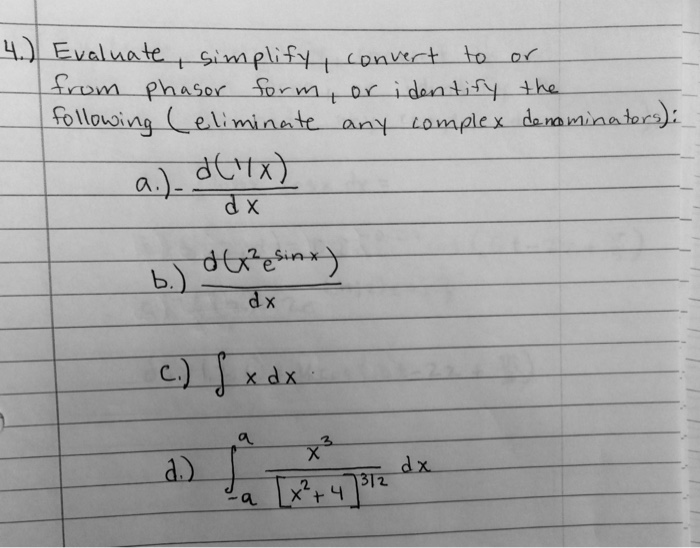 4.) Evaluate, simplify, convert to or
from phasor form, or identify the
following (eliminate any complex denominators):
a.) - d(1/x)
dx
b.) d(x²e^sinx)
dx
c.) ∫ x dx
d.) ∫_{-a}^{a} x³ / [x²+4]^{3/2} dx